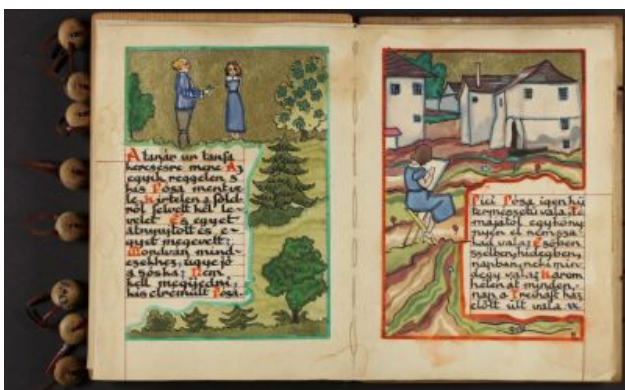 A tanár ur tanfa
keresésre mene Az
egyik reggelen s
kis Pósa mentve
le hirtelen a föld-
ről felvett két le-
velet És egyet
átnyujtott és e-
gyet megevett;
Mondván mind-
esekhez: ügye jó
a sóska; Nem
kell megijedni,
kis elrémült Pósa.
Pici Pósa igen hű
természetű vala, Té
májától egyköny
nyen el nem sza
kad vala; Esőben
szélben, hidegben,
napban, neki min
degy vala; Három
helen át minden,
nap a Treihaft ház
előtt ült vala